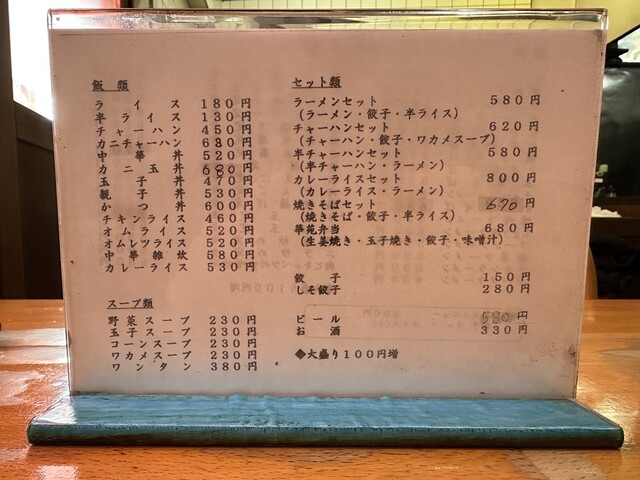 飯類
ライス 180円
半ライス 130円
チャーハン 450円
カニチャーハン 680円
中華丼 520円
カニ玉丼 680円
玉子丼 470円
親子丼 530円
かつ丼 600円
チキンライス 460円
オムライス 520円
オムレツライス 520円
中華雑炊 580円
カレーライス 530円
スープ類
野菜スープ 230円
玉子スープ 230円
コーンスープ 230円
ワカメスープ 230円
ワンタン 380円
セット類
ラーメンセット 580円
(ラーメン・餃子・半ライス)
チャーハンセット 620円
(チャーハン・餃子・ワカメスープ)
半チャーハンセット 580円
(半チャーハン・ラーメン)
カレーライスセット 800円
(カレーライス・ラーメン)
焼きそばセット 670円
(焼きそば・餃子・半ライス)
華苑弁当 680円
(生姜焼き・玉子焼き・餃子・味噌汁)
餃子 150円
しそ餃子 280円
ビール 580円
お酒 330円
◆大盛り100円増